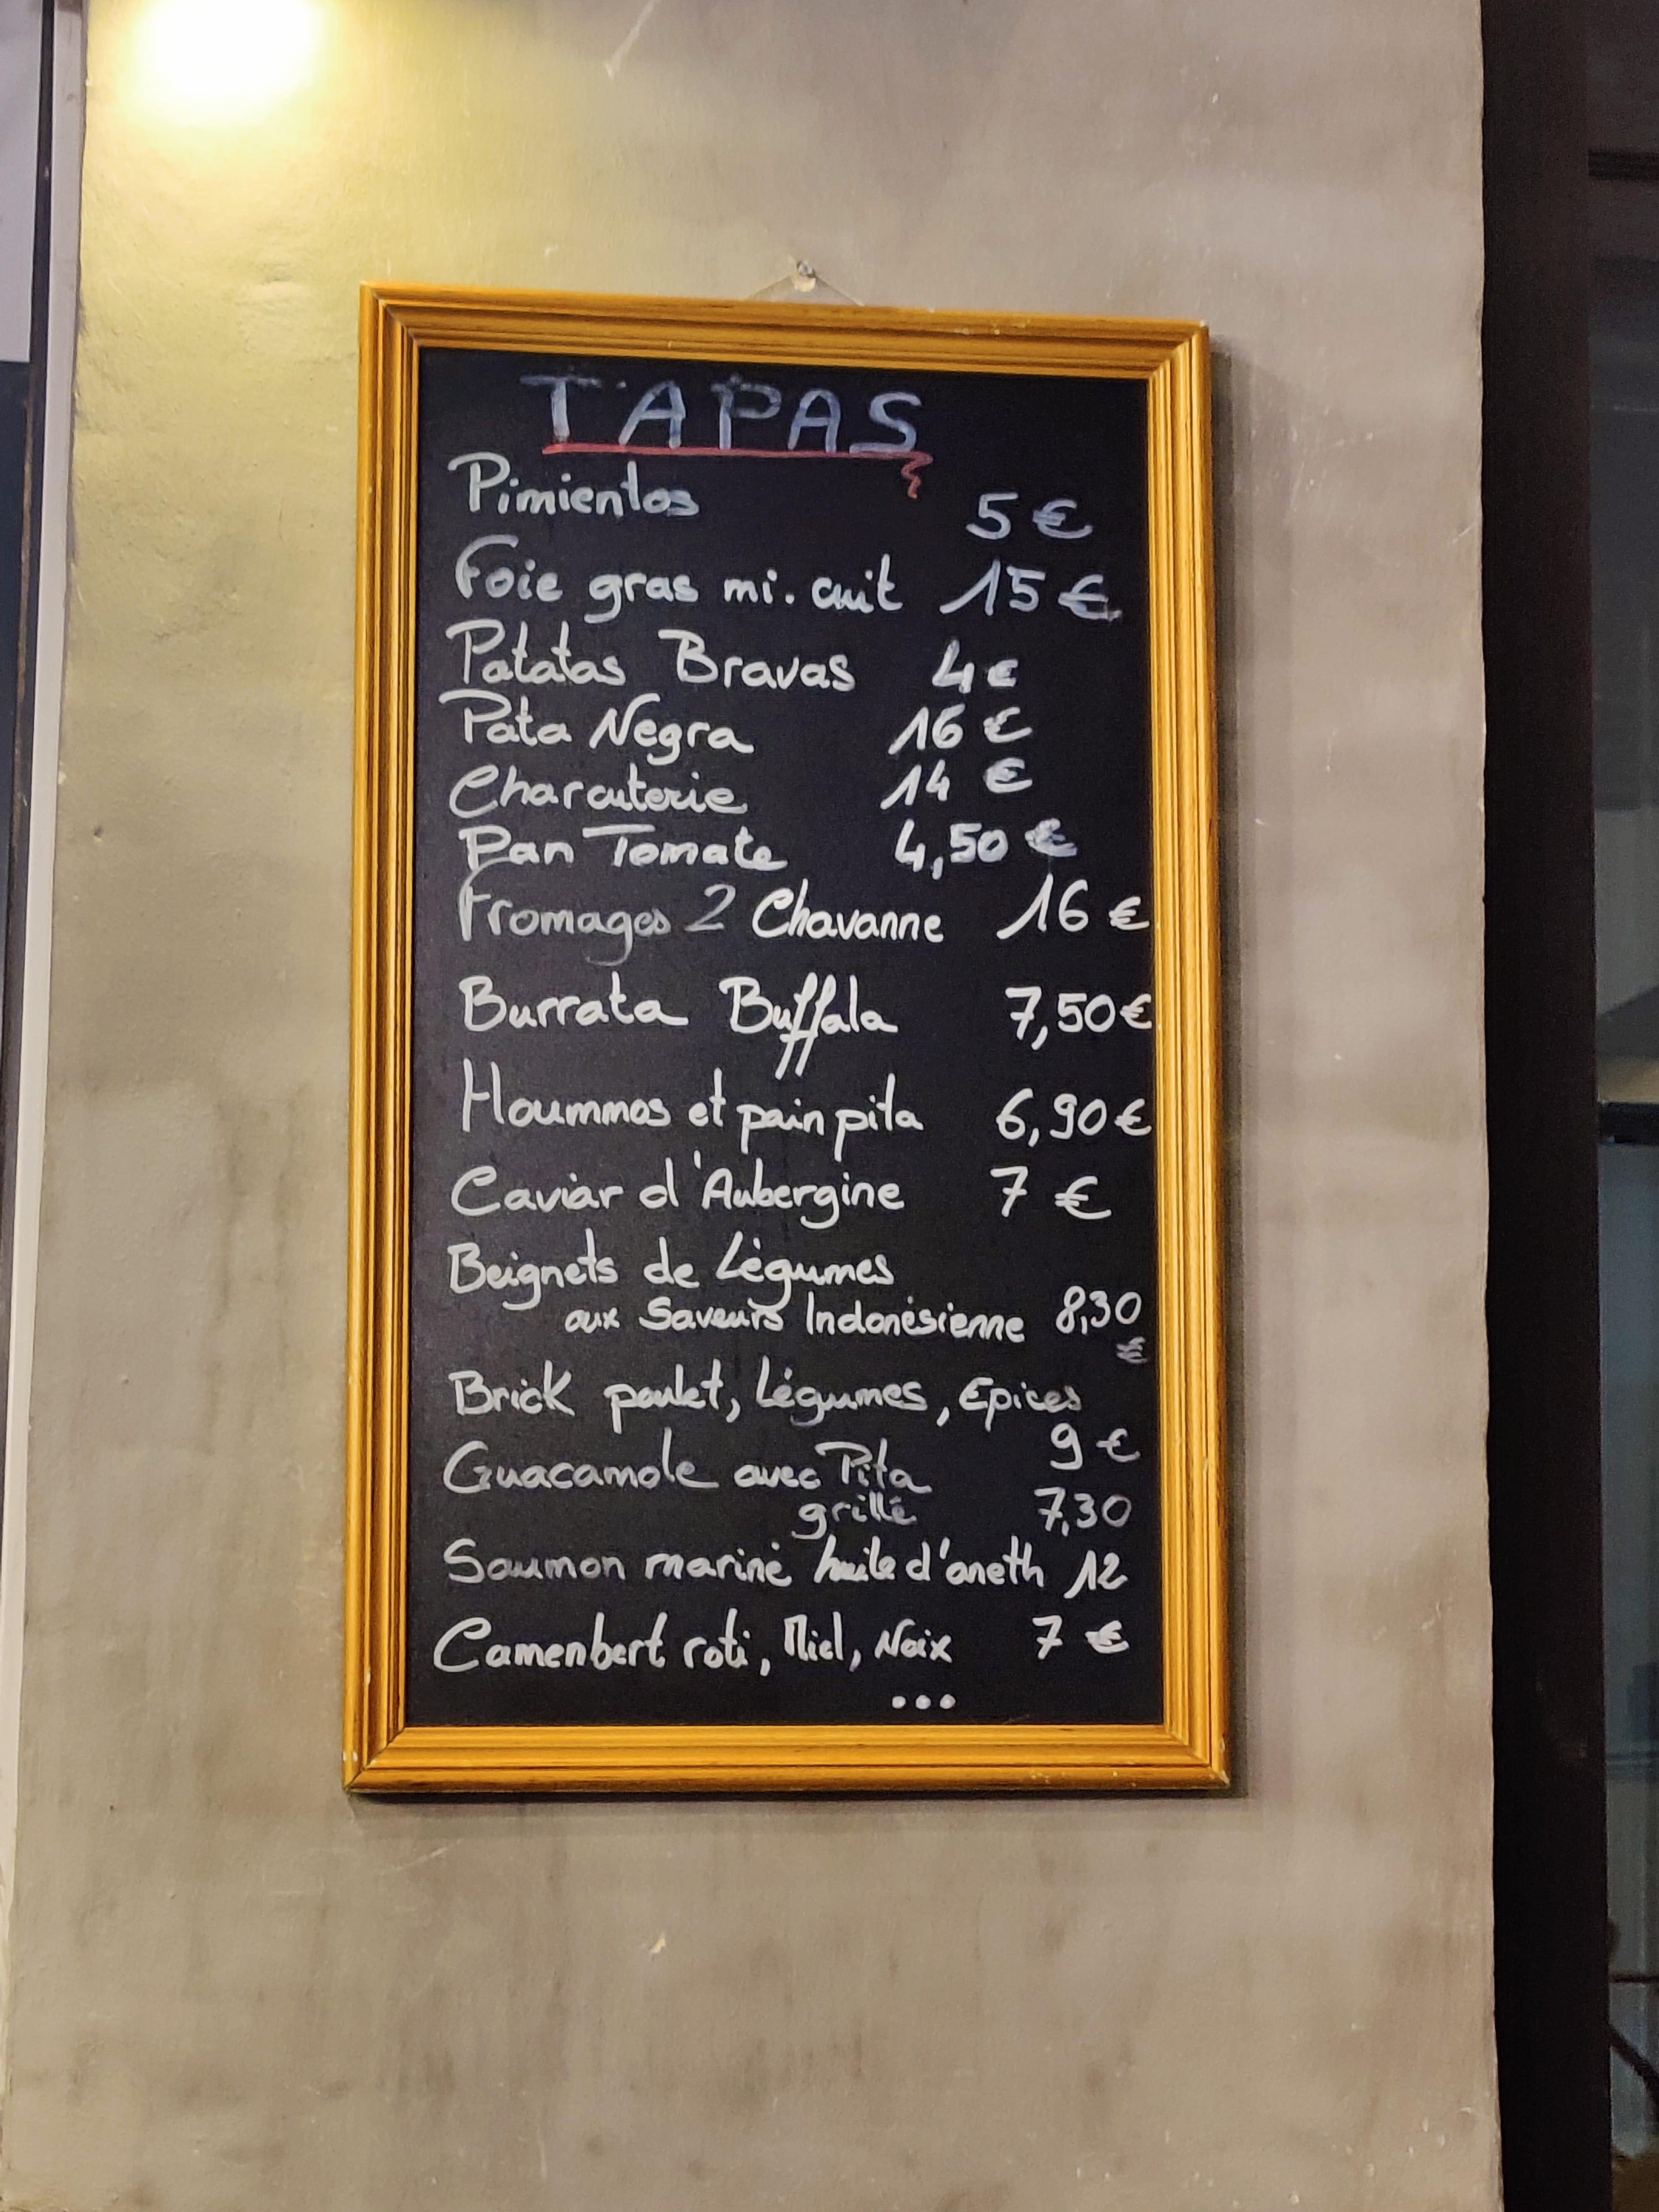 TAPAS
Pimientos 5€
Foie gras mi.cuit 15€
Patatas Bravas 4€
Pata Negra 16€
Charcuterie 14€
Pan Tomate 4,50€
Fromages 2 Chavanne 16€
Burrata Buffala 7,50€
Hoummos et pain pita 6,90€
Caviar d'Aubergine 7€
Beignets de Légumes
aux Saveurs Indonésienne 8,30
€
Brick poulet, Légumes, Epices
9€
Guacamole avec Pita
grillé 7,30
Saumon mariné huile d'aneth 12
Camenbert roti, Miel, Noix 7€
...